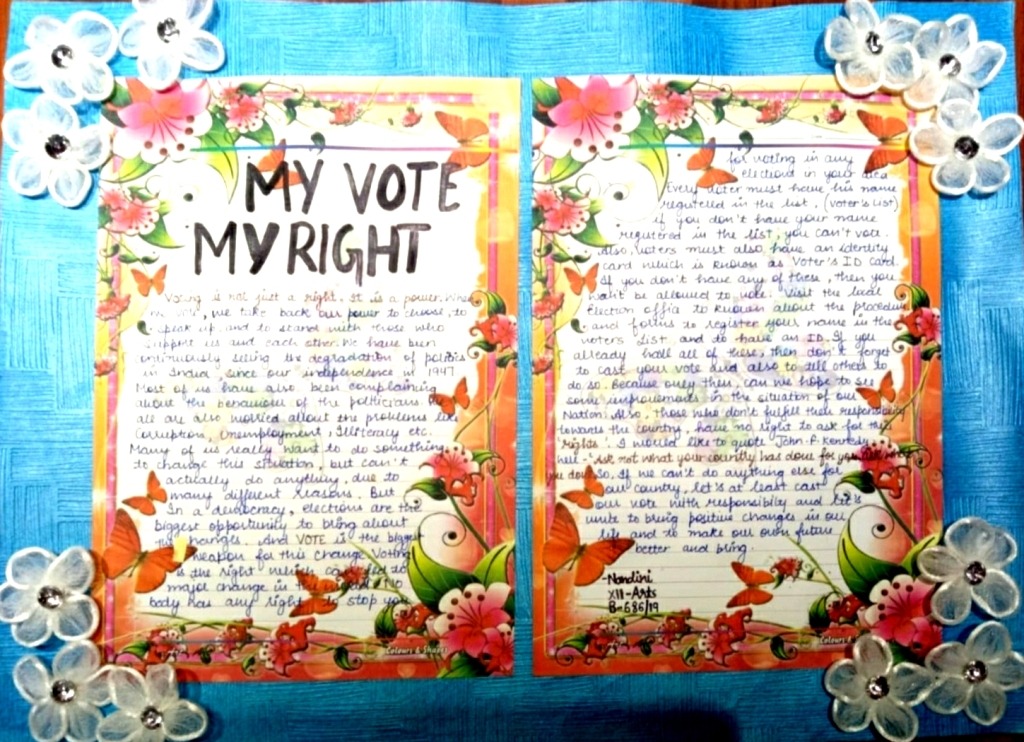 MY VOTE
MY RIGHT
Voting is not just a right. It is a power. When
we vote, we take back our power to choose, to
speak up, and to stand with those who
support us and each other. We have been
continuously seeing the degradation of politics
in India since our independence in 1947
Most of us have also been complaining
about the behaviour of the politicians. We
all are also worried about the problems like
Corruption, Unemployment, Illiteracy etc.
Many of us really want to do something
to change this situation, but can't
actually do anything, due to
many different reasons. But
In a democracy, elections are the
biggest opportunity to bring about
the changes. And VOTE is the biggest
weapon for this change. Voting
is the right which can
major change in the No
body has any right to stop you
Colours & Shapes
for voting in any
elections in your area
Every voter must have his name
registered in the list. (Voter's List)
if you don't have your name
registered in the list, you can't vote.
Also, voters must also have an identity
card which is known as Voter's ID card.
If you don't have any of these, then you
won't be allowed to vote. Visit the local
election to known about the procedure
and forms to register your name in the
voters list and to have an ID. If you
already all of these, then don't forget
to cast your vote and also to tell others to
do so. Because only then can we hope to see
some improvements in the situation of our
Nation. Also, those who don't fulfill their responsibility
towards the country, have no right to ask for their
'rights'. I would like to quote 'John. F. Kennedy
here - "Ask not what your country has done for you, ask what
you done. So, If we can't do anything else for
our country, let's at least cast
our vote with responsibly and let's
unite to bring positive changes in our
life and to make our own future
better and bring.
-Nandini
XII-Arts
Colours &